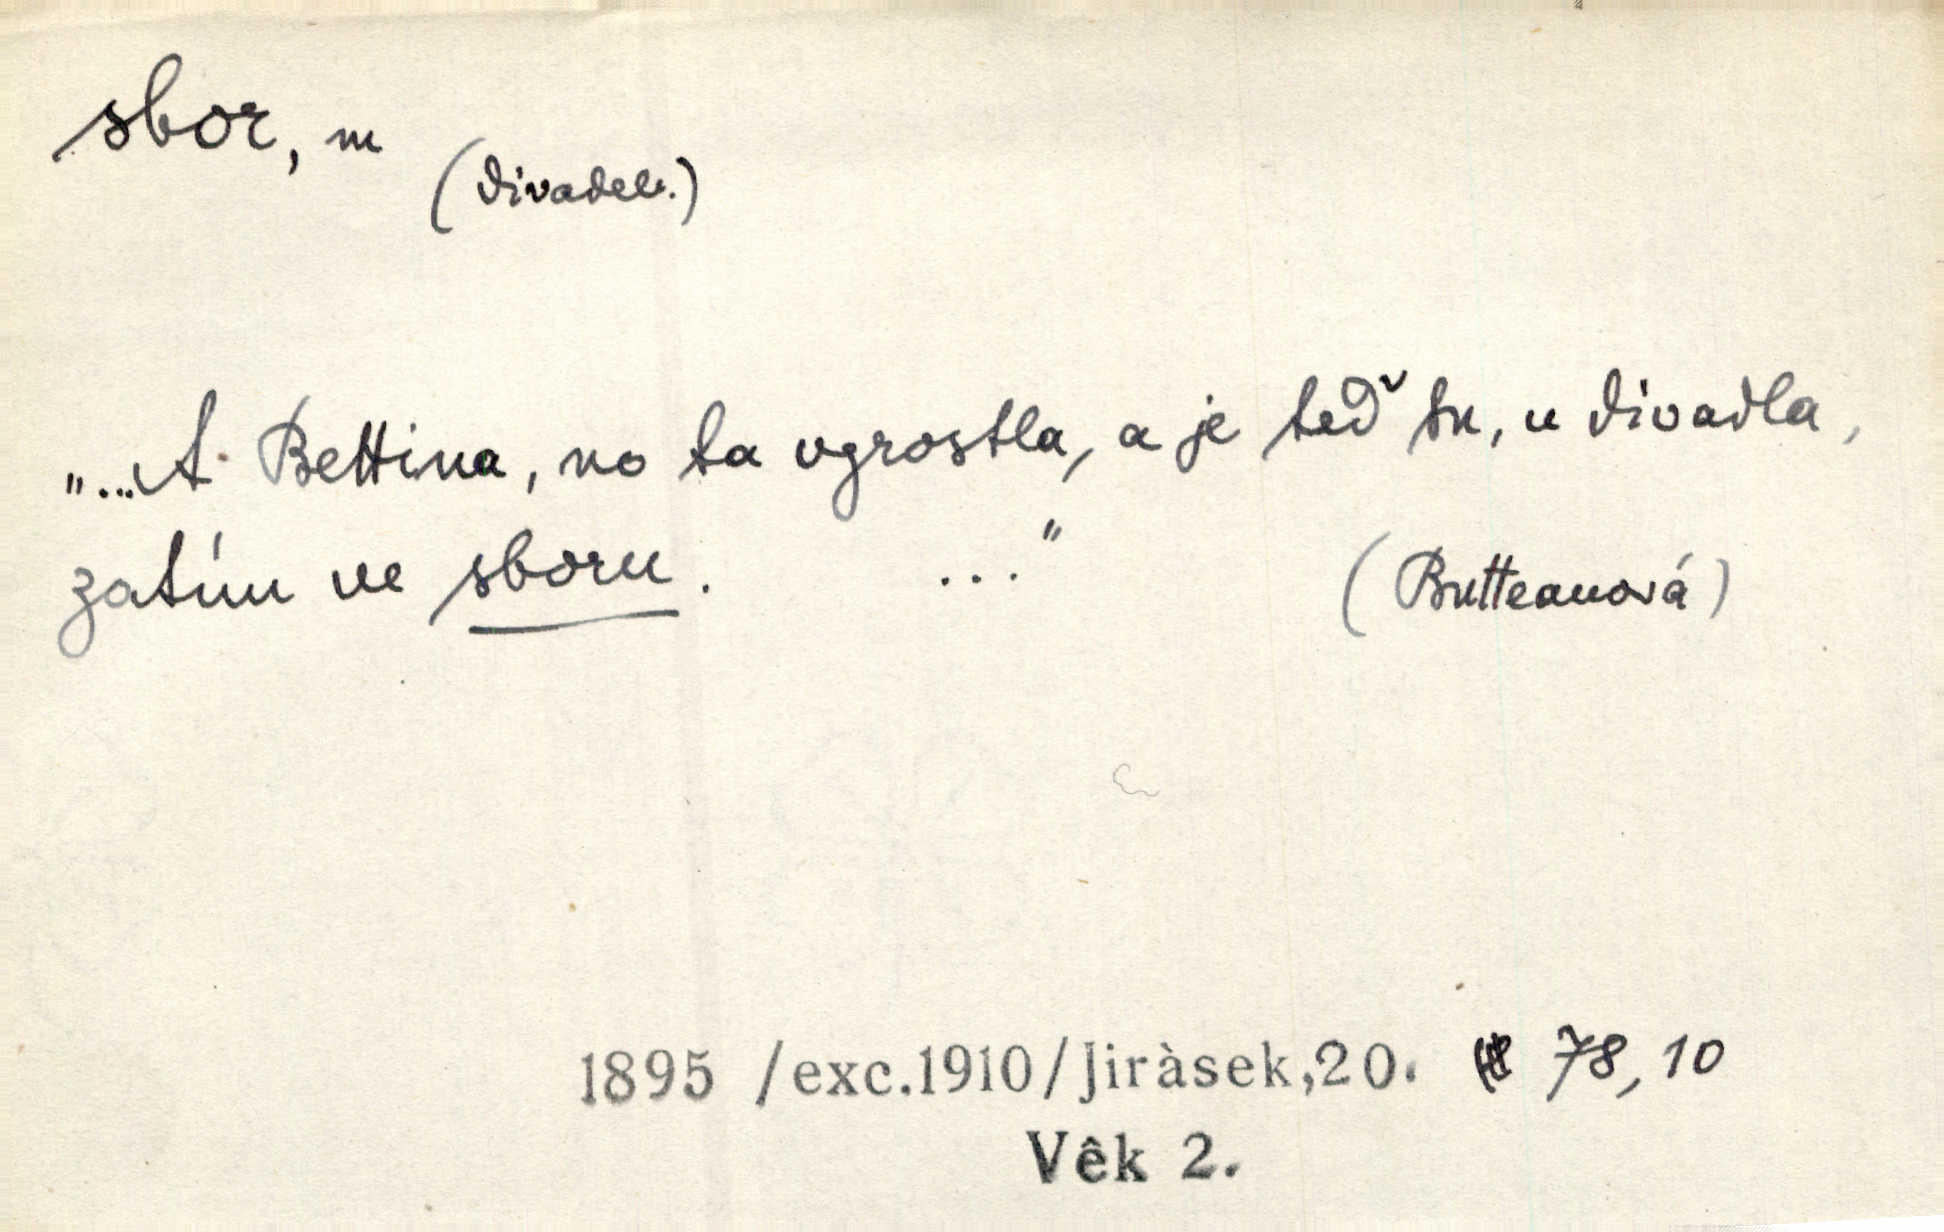 sbor, m
(divadel.)
„...A Bettina, no ta vyrostla, a je teď tu, u divadla,
zatím ve sboru. ..." (Butteauová)
1895 /exc.1910/Jiràsek,20. 78,10
Vêk 2.